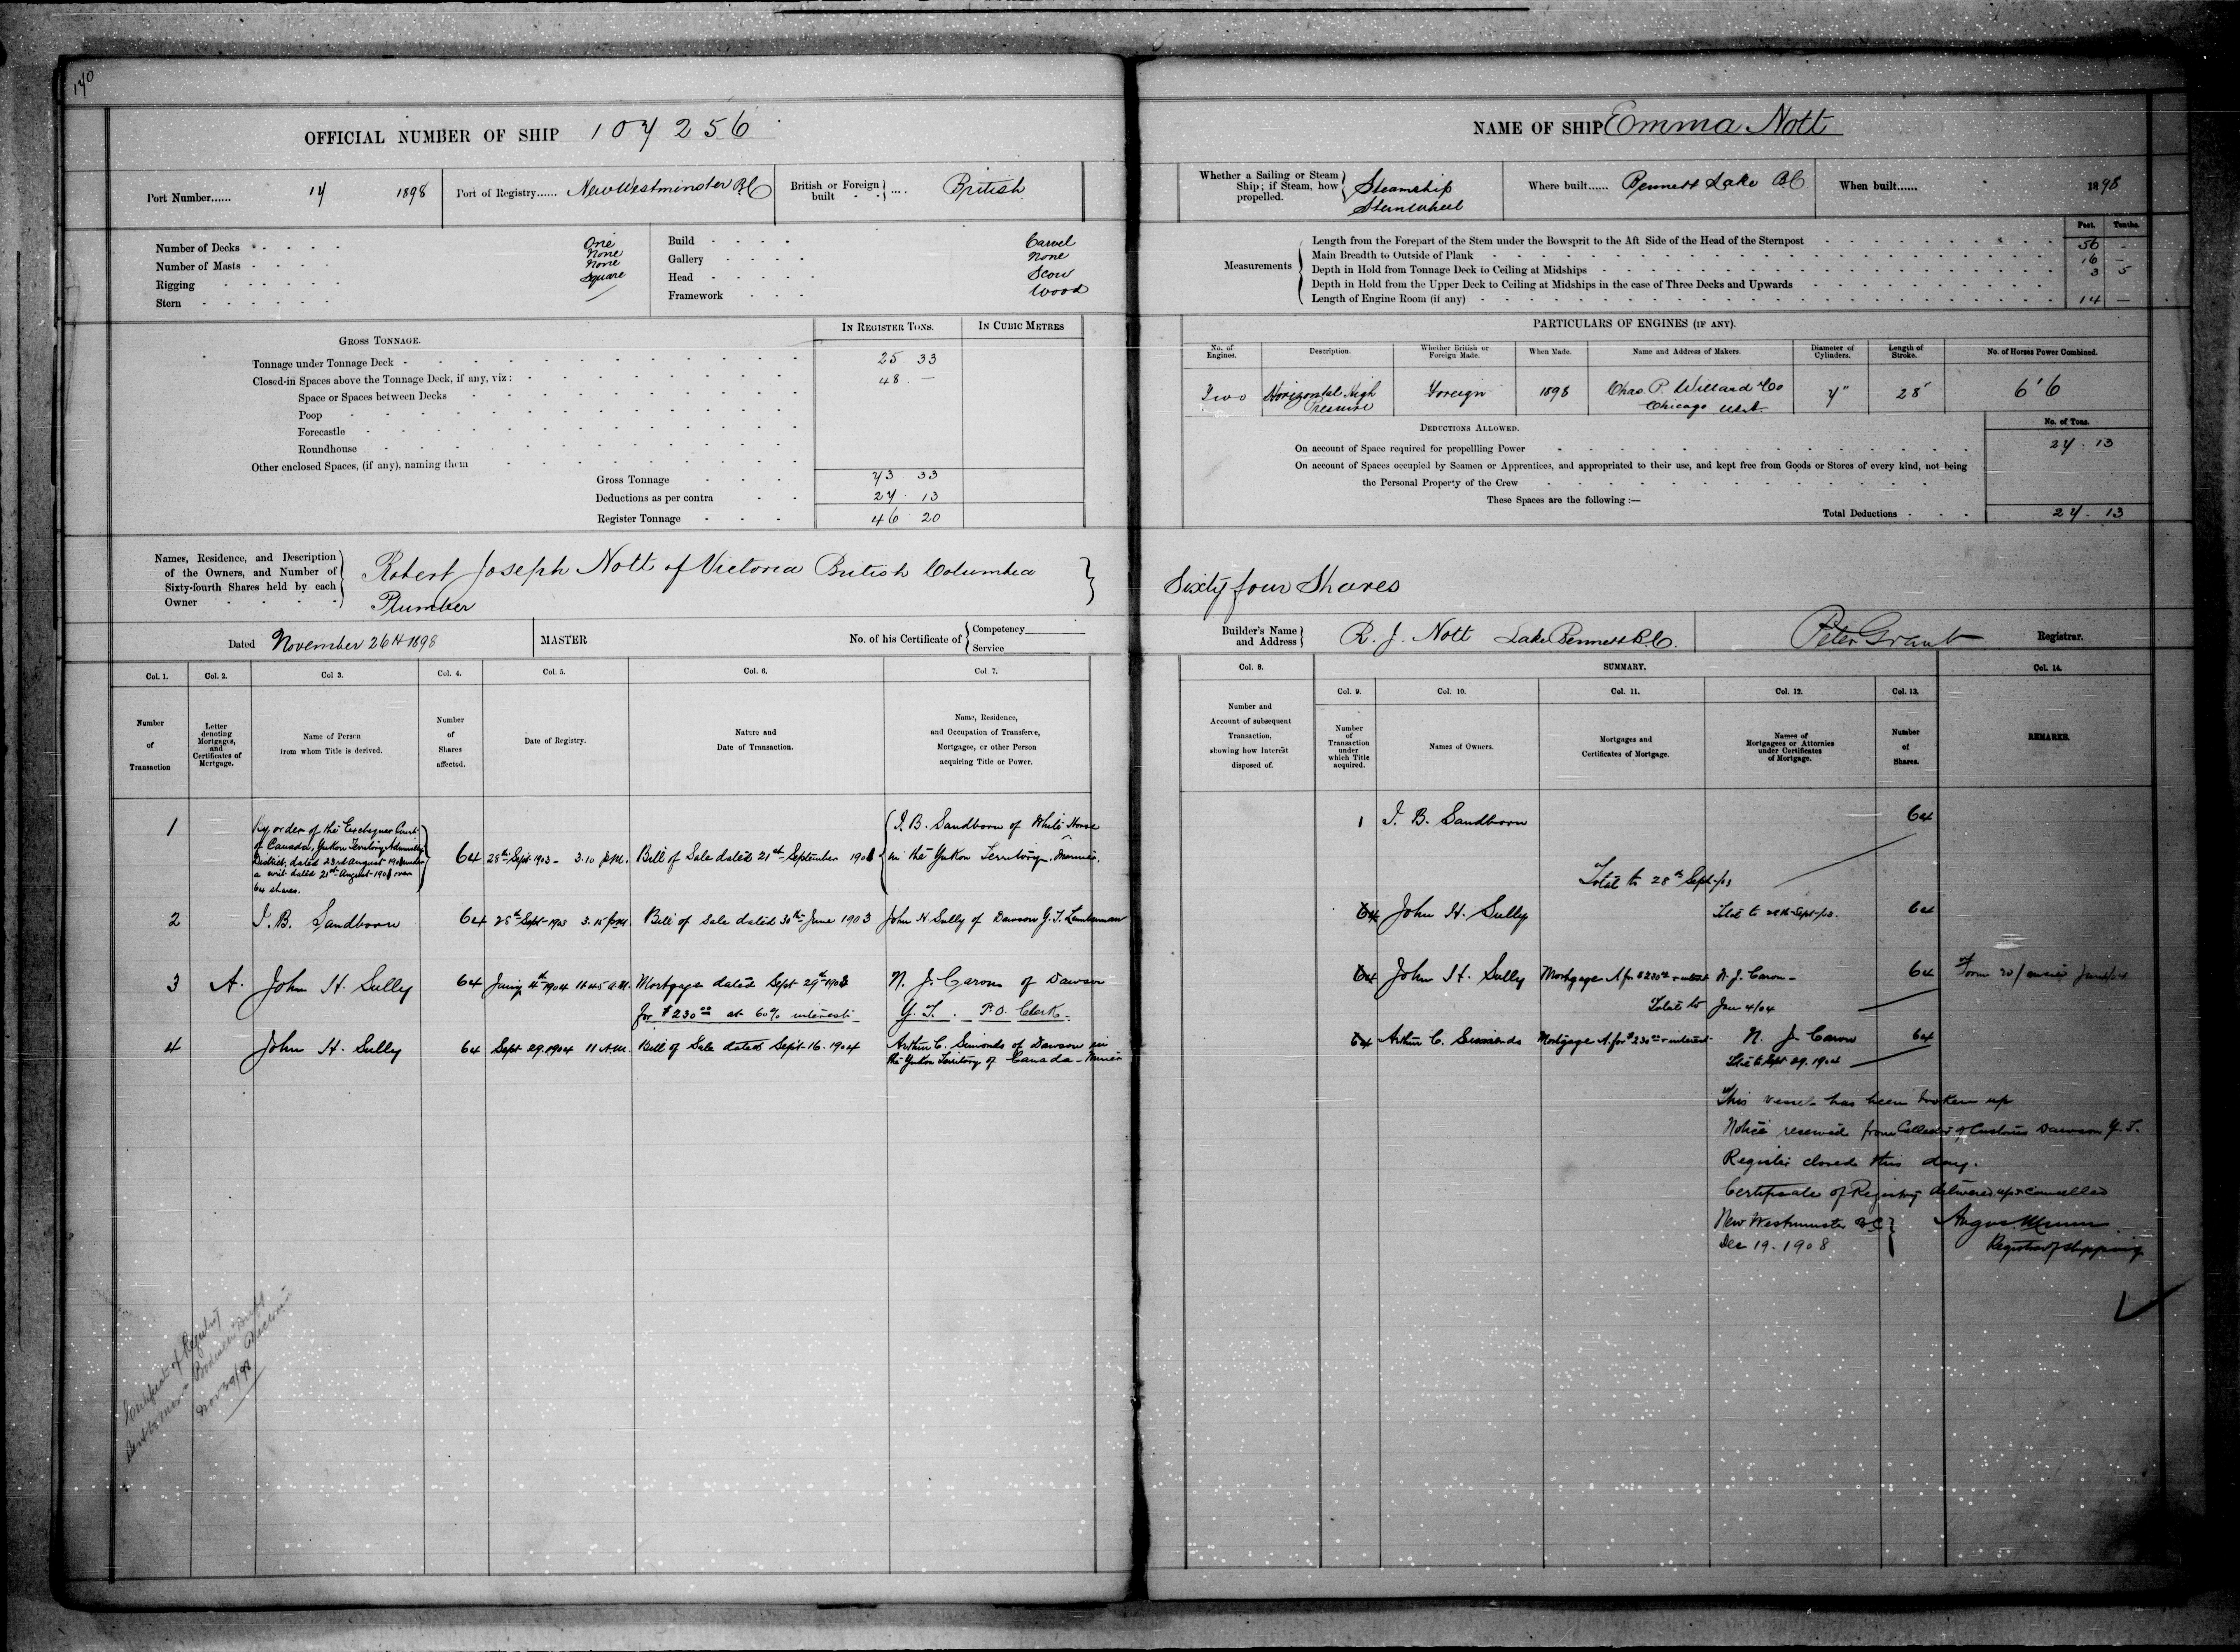 170
OFFICIAL NUMBER OF SHIP 107256
Port Number...... 17 1898
Port of Registry...... New Westminster B.C.
British or Foreign built .... British
Number of Decks One
Number of Masts None
Rigging None
Stern Square
Build Carvel
Gallery None
Head Scow
Framework Wood
GROSS TONNAGE.
IN REGISTER TONS.
IN CUBIC METRES
Tonnage under Tonnage Deck 25 33
Closed-in Spaces above the Tonnage Deck, if any, viz: 48 —
Space or Spaces between Decks
Poop
Forecastle
Roundhouse
Other enclosed Spaces, (if any), naming them
Gross Tonnage 73 33
Deductions as per contra 27 13
Register Tonnage 46 20
Names, Residence, and Description
of the Owners, and Number of
Sixty-fourth Shares held by each
Owner
Robert Joseph Nott of Victoria British Columbia
Plumber
Dated November 26th 1898
MASTER
No. of his Certificate of Competency
Service
Col. 1. Col. 2. Col 3. Col. 4. Col. 5. Col. 6. Col 7.
Number of Transaction
Letter denoting Mortgages, and Certificates of Mortgage.
Name of Person from whom Title is derived.
Number of Shares affected.
Date of Registry.
Nature and Date of Transaction.
Name, Residence, and Occupation of Transferee, Mortgagee, or other Person acquiring Title or Power.
1
By order of the Exchequer Court
of Canada, Yukon Territory Admiralty
District, dated 23rd August 1901 under
a writ dated 21st August 1901 over
64 shares.
64 28th Sept 1903 - 3.10 p.m. Bill of Sale dated 21st September 1901
I. B. Sandborn of White Horse
in the Yukon Territory. Mariner.
2 I. B. Sandborn 64 28th Sept 1903 3.15 p.m. Bill of Sale dated 30th June 1903 John H. Sully of Dawson Y.T. Lumberman
3 A. John H. Sully 64 Jany 4th 1904 11.45 A.M. Mortgage dated Sept 29th 1903
for $230.00 at 60% interest
N. J. Caron of Dawson
Y.T. P.O. Clerk
4 John H. Sully 64 Sept 29. 1904 11 A.M. Bill of Sale dated Sept 16. 1904
Arthur C. Simonds of Dawson in
the Yukon Territory of Canada - Miner
Certificate of Registry
Nov 29/98
NAME OF SHIP Emma Nott
Whether a Sailing or Steam
Ship; if Steam, how
propelled.
Steamship
Sternwheel
Where built...... Bennett Lake B.C.
When built...... 1898
Measurements
Feet. Tenths.
Length from the Forepart of the Stem under the Bowsprit to the Aft Side of the Head of the Sternpost 56 —
Main Breadth to Outside of Plank 16 —
Depth in Hold from Tonnage Deck to Ceiling at Midships 3 5
Depth in Hold from the Upper Deck to Ceiling at Midships in the case of Three Decks and Upwards
Length of Engine Room (if any) 14 —
PARTICULARS OF ENGINES (IF ANY).
No. of Engines.
Description.
Whether British or Foreign Made.
When Made.
Name and Address of Makers.
Diameter of Cylinders.
Length of Stroke.
No. of Horses Power Combined.
Two Horizontal High Pressure Foreign 1898 Chas. P. Willard & Co Chicago U.S.A. 7" 28" 6'6
DEDUCTIONS ALLOWED.
No. of Tons.
On account of Space required for propellling Power 27. 13
On account of Spaces occupied by Seamen or Apprentices, and appropriated to their use, and kept free from Goods or Stores of every kind, not being
the Personal Property of the Crew
These Spaces are the following :—
Total Deductions 27. 13
Sixty four Shares
Builder's Name and Address R. J. Nott Lake Bennett B.C.
Peter Grant Registrar.
Col. 8. SUMMARY. Col. 14.
Col. 9. Col. 10. Col. 11. Col. 12. Col. 13.
Number and Account of subsequent Transaction, showing how Interest disposed of.
Number of Transaction under which Title acquired.
Names of Owners.
Mortgages and Certificates of Mortgage.
Names of Mortgagees or Attornies under Certificates of Mortgage.
Number of Shares.
REMARKS.
1 I. B. Sandborn 64
Total to 28th Sept/03
64 John H. Sully 64
Total to 28th Sept/03.
64 John H. Sully Mortgage A for $230.00 + interest N. J. Caron 64
Total to Jan 4/04
64 Arthur C. Simonds Mortgage A. for $230.00 + interest N. J. Caron 64
Total to Sept 29. 1904
This vessel has been broken up
Notice received from Collector of Customs Dawson Y.T.
Register closed this day.
Certificate of Registry delivered up & cancelled
New Westminster B.C.
Dec 19. 1908
Registrar of Shipping